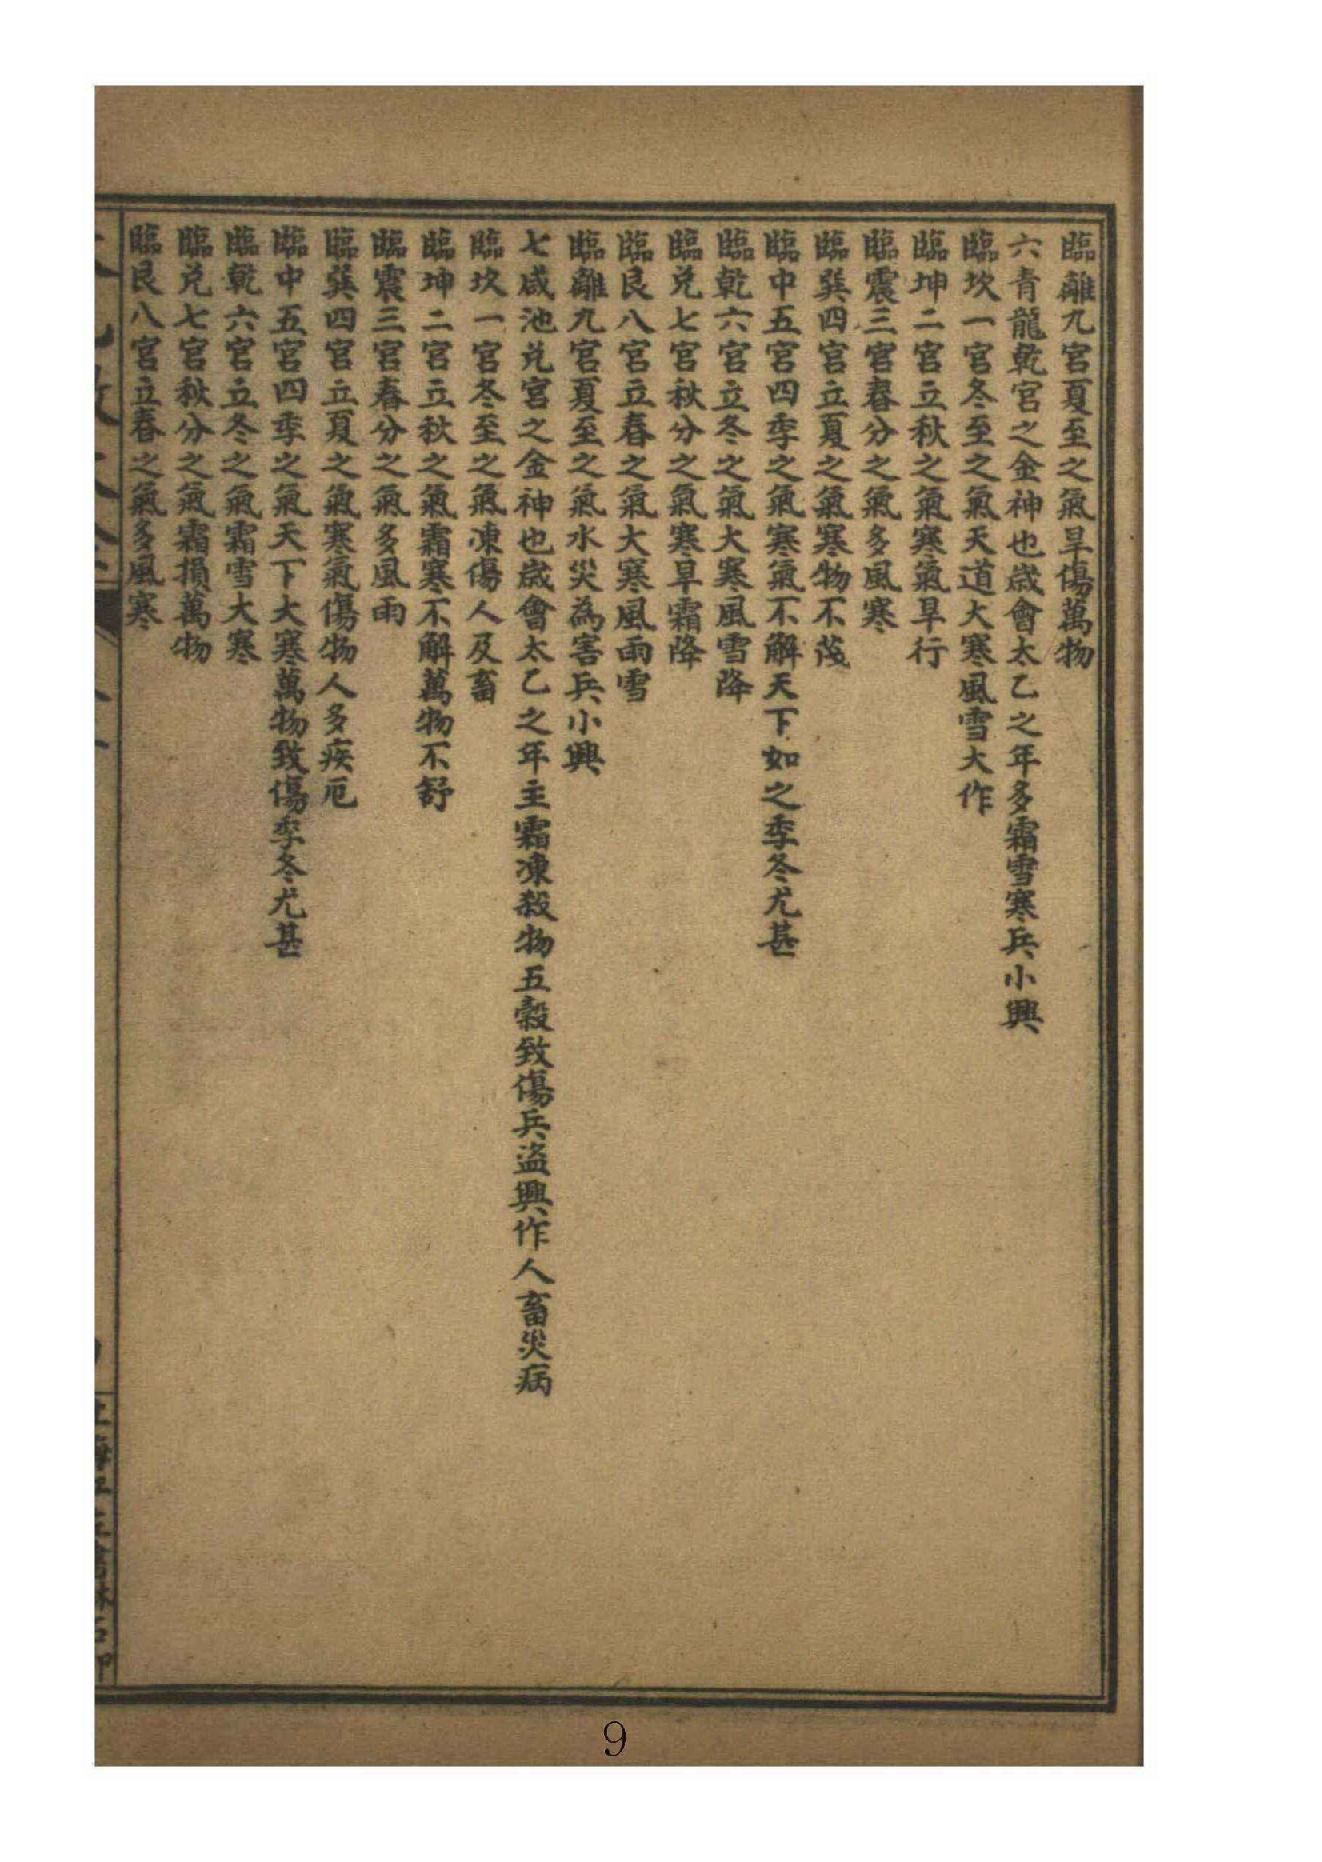 臨離九宮夏至之氣旱傷萬物
六青龍乾宮之金神也歲會太乙之年多霜雪寒兵小興
臨坎一宮冬至之氣天道大寒風雪大作
臨坤二宮立秋之氣寒氣早行
臨震三宮春分之氣多風寒
臨巽四宮立夏之氣寒物不茂
臨中五宮四季之氣寒氣不解天下如之季冬尤甚
臨乾六宮立冬之氣大寒風雪降
臨兌七宮秋分之氣寒早霜降
臨艮八宮立春之氣大寒風雨雪
臨離九宮夏至之氣水災為害兵小興
七咸池兌宮之金神也歲會太乙之年主霜凍殺物五穀致傷兵盜興作人畜災病
臨坎一宮冬至之氣凍傷人及畜
臨坤二宮立秋之氣霜寒不解萬物不舒
臨震三宮春分之氣多風雨
臨巽四宮立夏之氣寒氣傷物人多疾厄
臨中五宮四季之氣天下大寒萬物致傷季冬尤甚
臨乾六宮立冬之氣霜雪大寒
臨兌七宮秋分之氣霜損萬物
臨艮八宮立春之氣多風寒
9